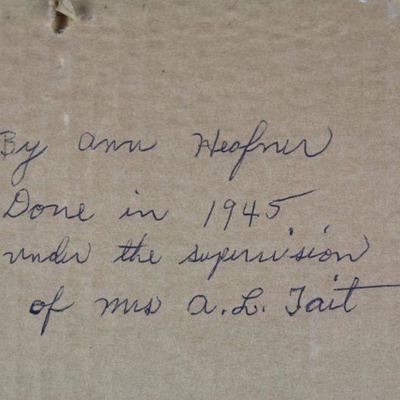 By Ann Heafner
Done in 1945
under the supervision
of Mrs A. L. Tait